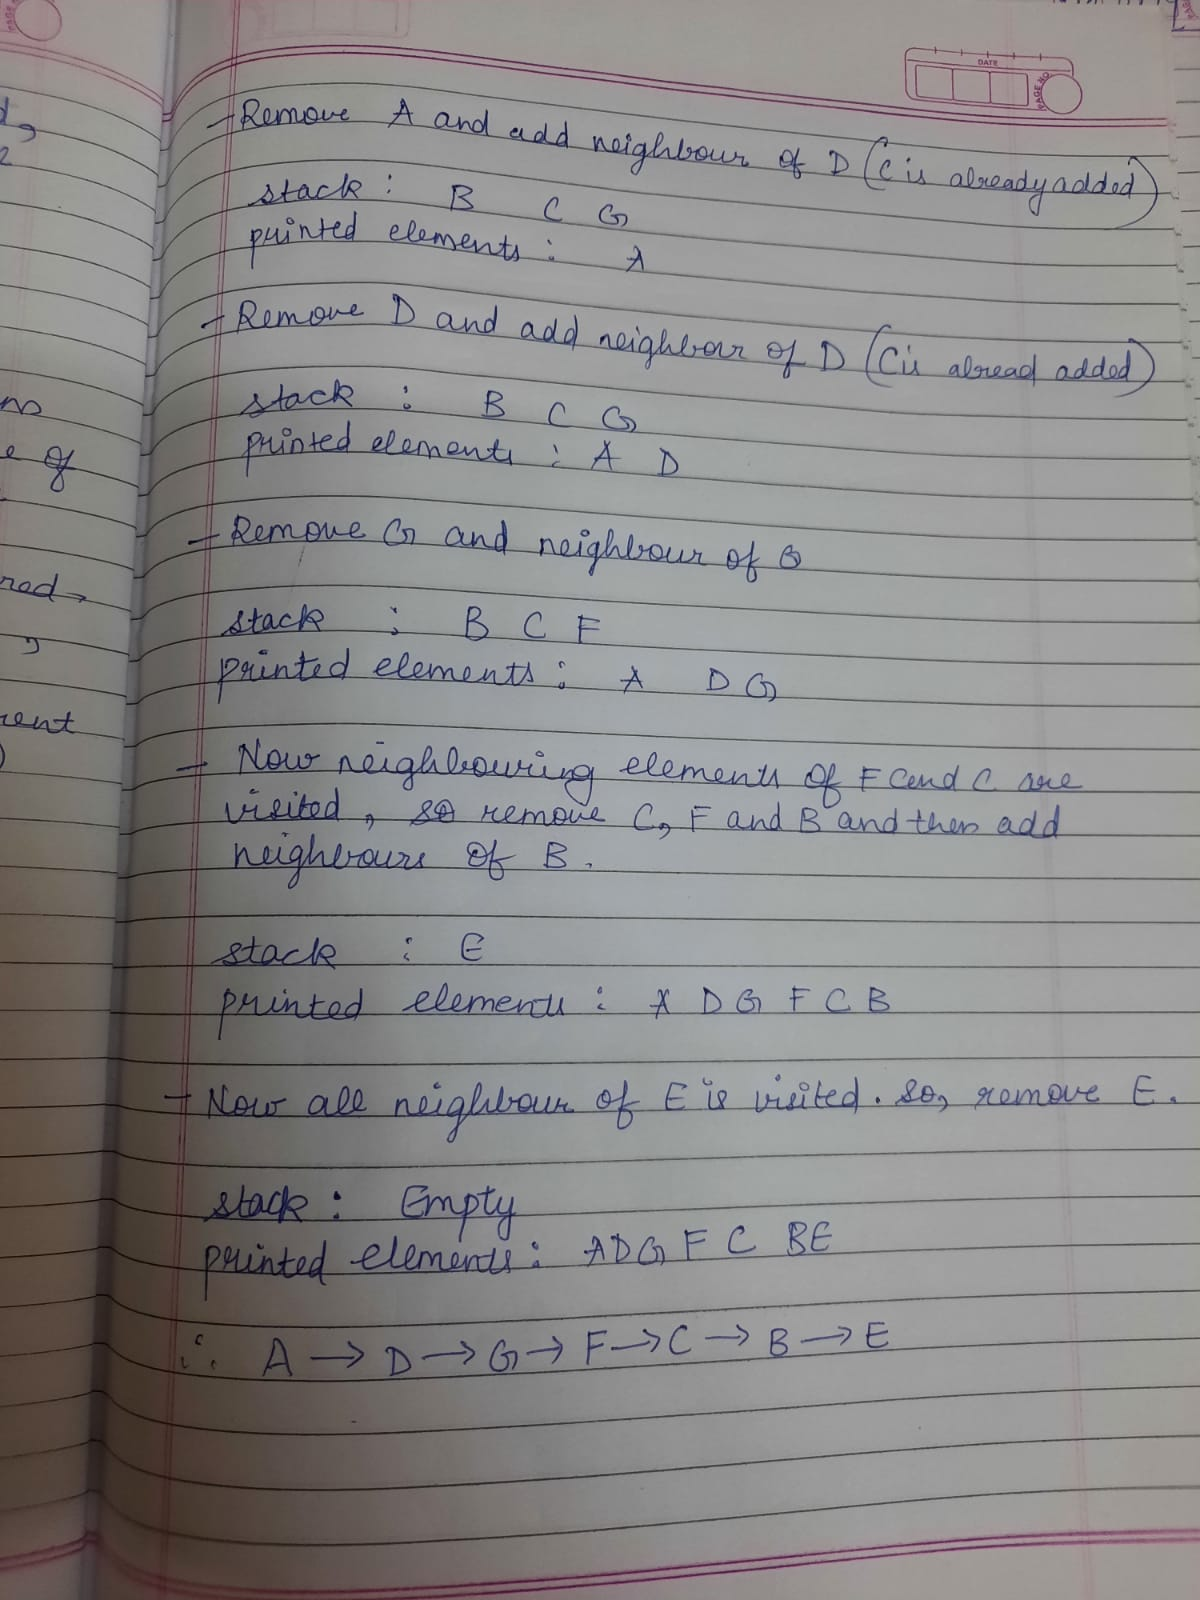 DATE
PAGE NO
- Remove A and add neighbour of D (C is already added)
stack : B C G
printed elements : A
- Remove D and add neighbour of D (C is alread added)
stack : B C G
printed elements : A D
- Remove G and neighbour of G
stack : B C F
printed elements : A D G
- Now neighbouring elements of F and C are
visited, so remove C, F and B and then add
neighbours of B.
stack : E
printed elements : A D G F C B
- Now all neighbour of E is visited. So, remove E.
stack : Empty
printed elements : A D G F C B E
∴ A → D → G → F → C → B → E